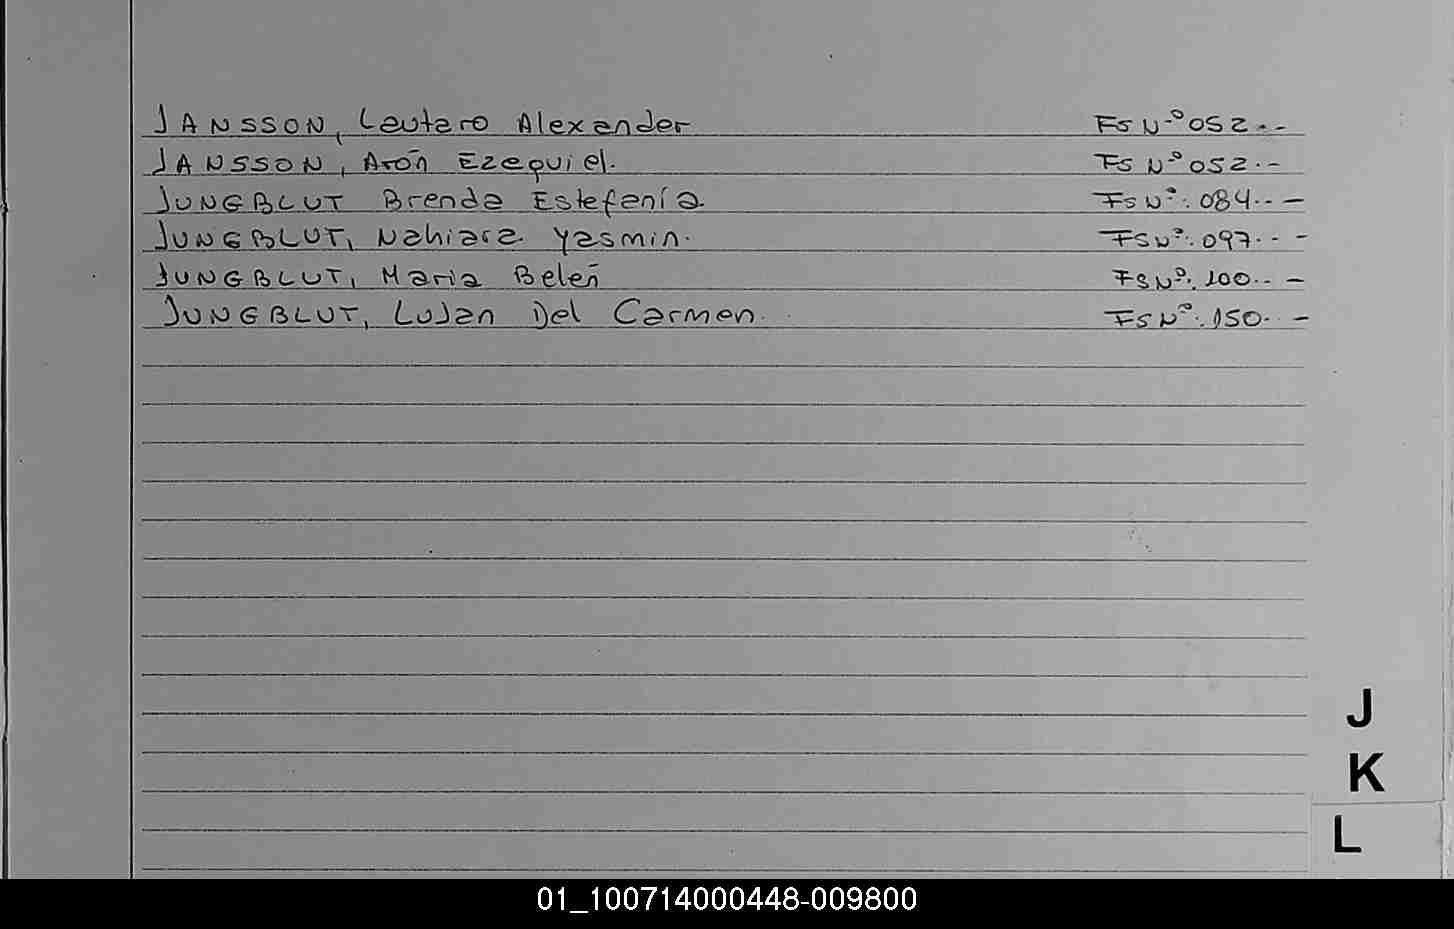 JANSSON, Lautaro Alexander FS Nº 052.-
JANSSON, Arón Ezequiel. FS Nº 052.-
JUNGBLUT Brenda Estefanía FS Nº: 084..-
JUNGBLUT, Nahiara Yasmin. FS Nº: 097.--
JUNGBLUT, Maria Belén FS Nº: 100..-
JUNGBLUT, Lujan Del Carmen. FS Nº: 150.-
J
K
L
01_100714000448-009800